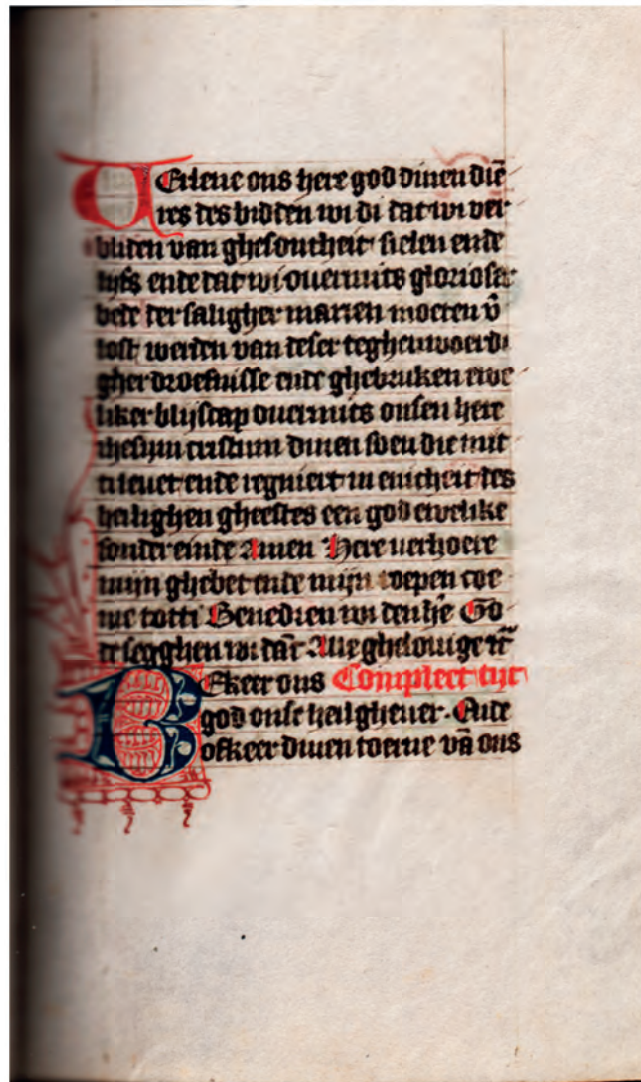 VErlene ons here god dinen diē
res des bidden wi di dat wi ver
bliden van ghesontheit sielen ende
lijfs ende dat wi ouermits glorioser
bede der saligher marien moeten v̄
lost werden van deser teghenwoerdi
gher droefnisse ende ghebruken ewe
liker blijscap ouermits onsen here
ihesum cristum dinen soen die mit
di leuet ende regniert in enicheit des
heilighen gheestes een god ewelike
sonder einde Amen Here verhoere
mijn ghebet ende mijn roepen coe
me totti Benedien wi den hē God
de segghen wi dāc Alle ghelouige
BEkeer ons Compleet tijt
god onse heilgheuer. Ende
ofkeer dinen toerne vā ons